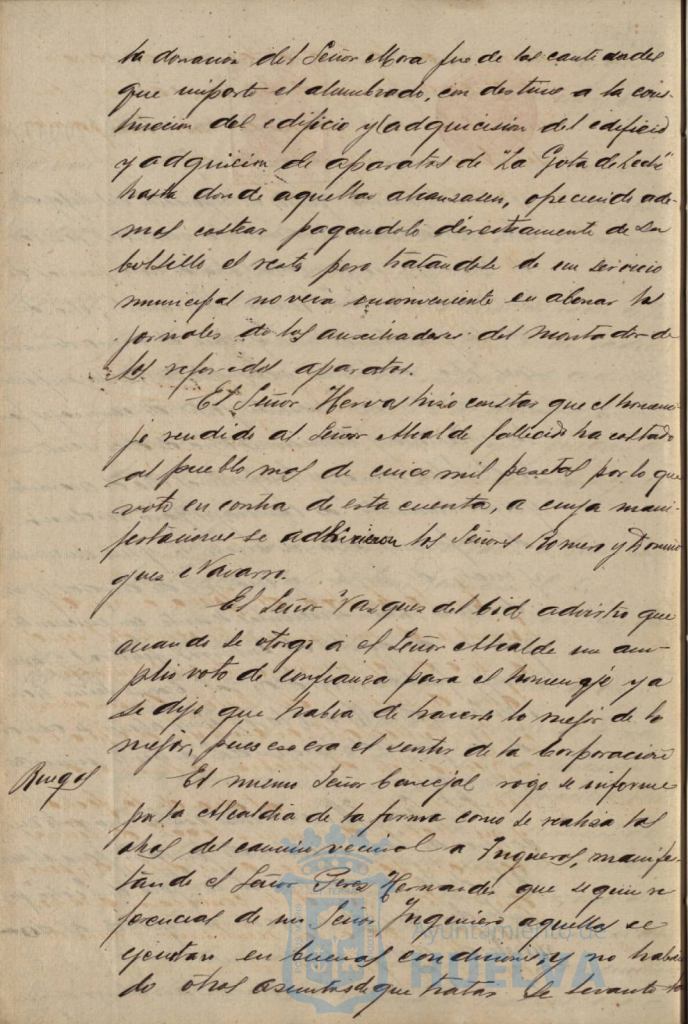 la donación del Señor Mora fue de las cantidades
que importe el alumbrado, con destino a la cons-
trucción del edificio y (adquicisión del edificio
y adquicición de aparatos de "La Gota de Leche"
hasta donde aquellas alcanzasen, ofreciendo ade-
mas costear pagandolo directamente de su
bolsillo el resto pero tratandose de un servicio
municipal no veia inconveniente en abonar los
jornales de los auxiliadores del montador de
los referidos aparatos.
El Señor Hervas hizo constar que el homena-
je rendido al Señor Alcalde fallecido ha costado
al pueblo mas de cinco mil pesetas por lo que
votó en contra de esta cuenta, a cuya mani-
festaciones se adhirieron los Señores Romero y Domin
guez Navarro.
El Señor Vazquez del Cid advirtió que
cuando se otorgó a el Señor Alcalde un am-
plio voto de confianza para el homenaje ya
se dijo que habia de hacerse lo mejor de lo
mejor, pues eso era el sentir de la Corporación
Ruegos
El mismo Señor Concejal rogó se informe
por la Alcaldia de la forma como se realiza las
obras del camino vecinal a Trigueros, manifes-
tando el Señor Perez Hernandez que segun re
ferencias de un Señor Ingeniero aquellas se
ejecutan en buenas condiciones y no habien
do otros asuntos de que tratar se levantó la
Ayuntamiento de
HUELVA